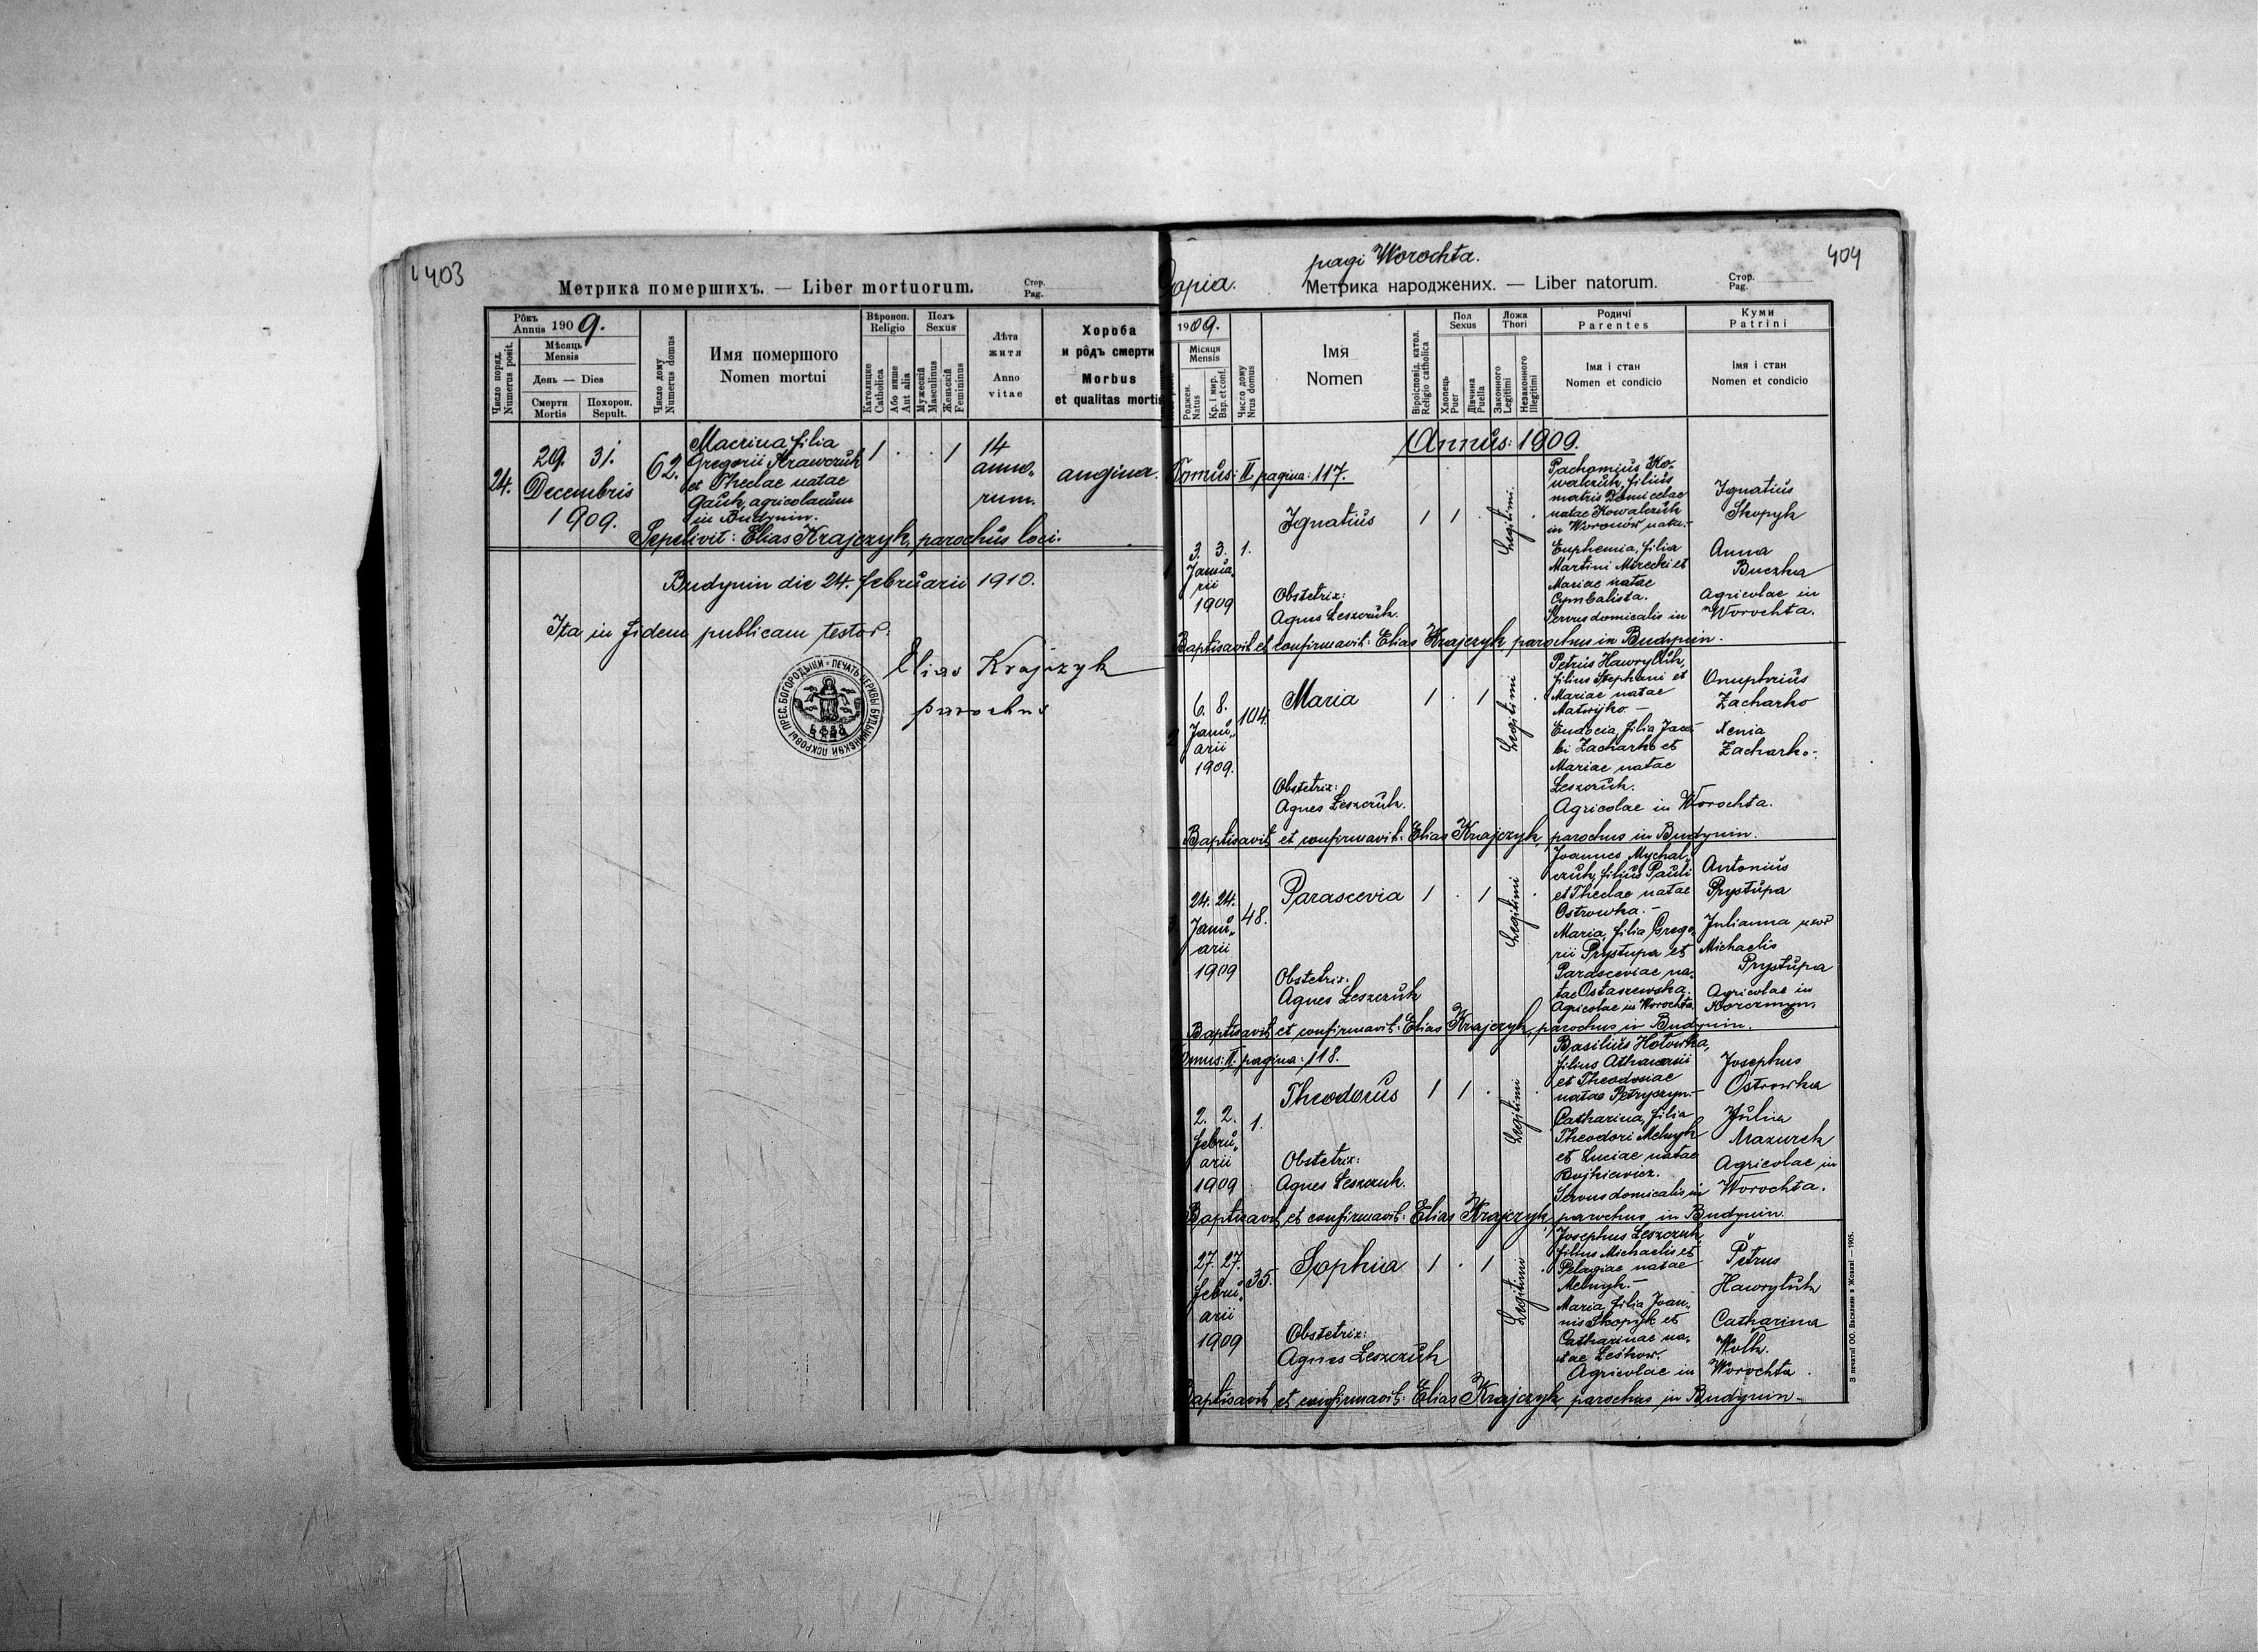 403
Метрика помершихъ. — Liber mortuorum.
Стор.
Pag.
Рôкъ
Annus 1909.
Мѣсяць
Mensis
День — Dies
Смерти
Mortis
Похорон.
Sepult.
Число поряд.
Numerus posit.
Число дому
Numerus domus
Имя помершого
Nomen mortui
Вѣроисп.
Religio
Католицке
Catholica
Або инше
Aut alia
Полъ
Sexus
Мужескій
Masculinus
Женскій
Femininus
Лѣта
житя
Anno
vitae
Хороба
и рôдъ смерти
Morbus
et qualitas mortis
24.
29. 31.
Decembris
1909.
62.
Macrina, filia
Gregorii Krawczuk
et Theclae natae
Gauk, agricolarum
in Budynin.
1 . . 1
14
anno„
rum.
angina.
Sepelivit: Elias Krajczyk, parochus loci.
Budynin die 24. februarii 1910.
Ita in fidem publicam testor:
Elias Krajczyk
parochus
ПЕЧАТЬ ЦЕРКВЫ БУДЫНИНСКОЙ ПОКРОВЫ ПРЕС. БОГОРОДЫЦИ
404
Copia.
pagi Worochta.
Метрика народжених. — Liber natorum.
Стор.
Pag.
1909.
Місяця
Mensis
Роджен.
Natus
Кр. і мир.
Bap. et conf.
Число дому
Nrus domus
Імя
Nomen
Віроісповід. катол.
Religio catholica
Пол
Sexus
Хлопець
Puer
Дівчина
Puella
Ложа
Thori
Законного
Legitimi
Незаконного
Illegitimi
Родичі
Parentes
Імя і стан
Nomen et condicio
Куми
Patrini
Імя і стан
Nomen et condicio
Annus: 1909.
Tomus: II pagina: 117.
3. 3.
Janua„
rii
1909
1.
Ignatius
Obstetrix:
Agnes Leszczuk.
1 1 .
Legitimi.
Pachomius Ko„
walczuk, filius
matris Domicelae
natae Kowalczuk
in Woronów natu.—
Euphemia, filia
Martini Mirecki et
Mariae natae
Cymbalista.
Servus domicalis in
Ignatius
Skopyk
Anna
Buczka
Agricolae in
Worochta.
Baptisavit et confirmavit: Elias Krajczyk parochus in Budynin.
2
6. 8.
Janu„
arii
1909.
104.
Maria
Obstetrix:
Agnes Leszczuk.
1 . 1
Legitimi
Petrus Hawryluk,
filius Stephani et
Mariae natae
Matwijko.—
Eudocia, filia Jaco-
bi Zacharko et
Mariae natae
Leszczuk.
Agricolae in Worochta.
Onuphrius
Zacharko
Xenia
Zacharko.
Baptisavit et confirmavit: Elias Krajczyk, parochus in Budynin.
24. 24.
Janu„
arii
1909
48.
Parascevia
Obstetrix:
Agnes Leszczuk
1 . 1
Legitimi
Joannes Mychal„
czuk, filius Pauli
et Theclae natae
Ostrowka.—
Maria, filia Grego„
rii Prystupa et
Parasceviae na„
tae Ostaszewska.
Agricolae in Worochta.
Antonius
Prystupa
Julianna uxor
Michaelis
Prystupa
Agricolae in
Korczmyn.
Baptisavit et confirmavit: Elias Krajczyk, parochus in Budynin.
Tomus: II pagina: 118.
2. 2.
febru„
arii
1909
1.
Theodorus
Obstetrix:
Agnes Leszczuk.
1 1 .
Legitimi
Basilius Hołowka,
filius Athanasii
et Theodosiae
natae Petryszyn.—
Catharina, filia
Theodori Melnyk
et Luciae natae
Bojkiewicz.
Servus domicalis in
Josephus
Ostrowka
Julia
Mazurek
Agricolae in
Worochta.
Baptisavit et confirmavit: Elias Krajczyk, parochus in Budynin.
27. 27.
febru„
arii
1909
35.
Sophia
Obstetrix:
Agnes Leszczuk
1 . 1
Legitimi
Josephus Leszczuk,
filius Michaelis et
Pelagiae natae
Melnyk.—
Maria, filia Joan„
nis Skopyk et
Catharinae na„
tae Leśkow.
Agricolae in Worochta.
Petrus
Hawryluk
Catharina
Wołk.
Baptisavit et confirmavit: Elias Krajczyk, parochus in Budynin.
З печатні ОО. Василиян в Жовкві — 1905.